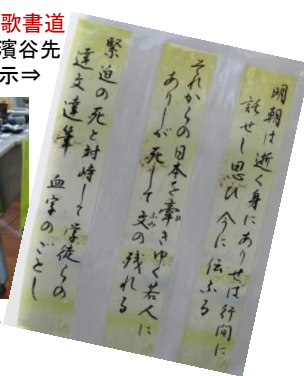 歌書道
濱谷先
示⇒
明朝は逝く身にありせは行間に
託せし思ひ今に伝ふる
それからの日本を牽きゆく若人に
ありしが死して文の残れる
緊迫の死と対峙して学徒らの
達文達筆 血字のごとし